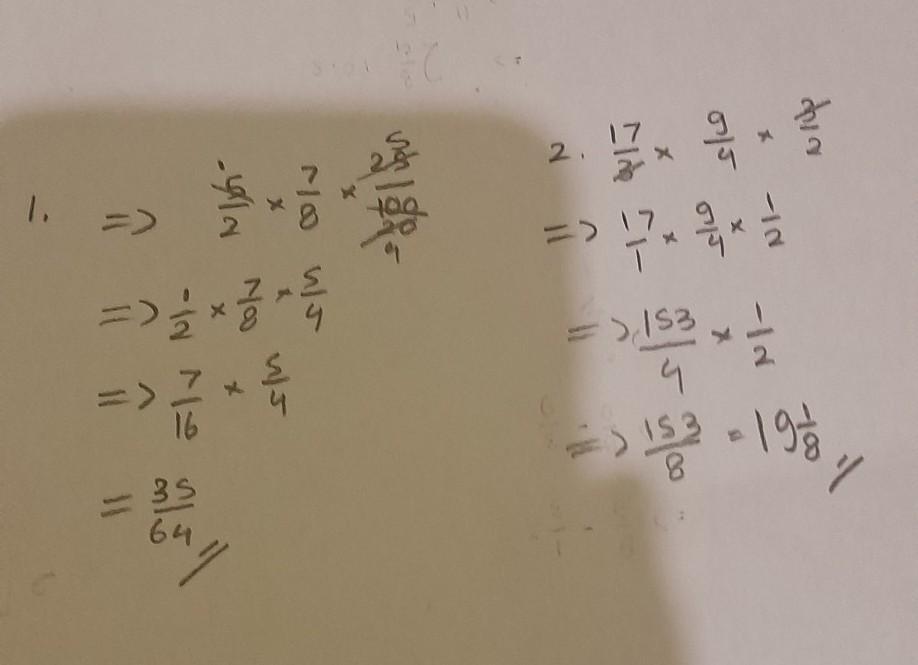 1. => 5/2 × 7/8 × 25/100
=> 1/2 × 7/8 × 5/4
=> 7/16 × 5/4
= 35/64 //
2. 17/3 × 9/4 × 3/2
=> 17/1 × 9/4 × 1/2
=> 153/4 × 1/2
=> 153/8 = 19 1/8 //